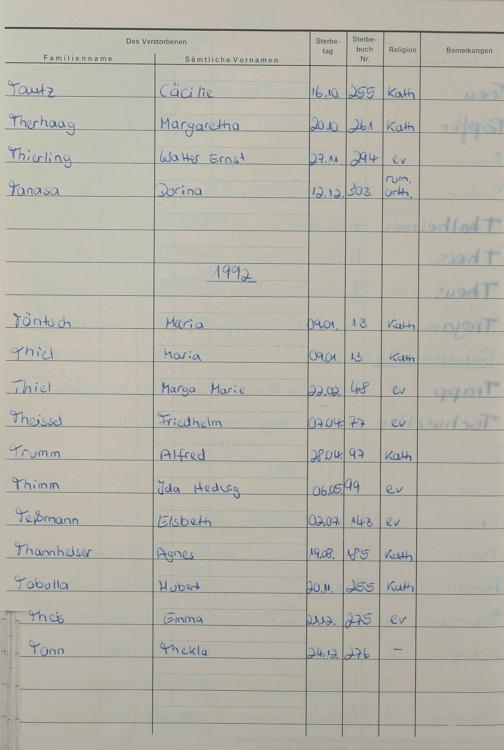 Des Verstorbenen
Familienname Sämtliche Vornamen Sterbe-tag Sterbe-buch Nr. Religion Bemerkungen
Tautz Cäcilie 16.10. 255 Kath
Therhaag Margaretha 20.10. 261 Kath
Thierling Walter Ernst 27.11. 294 ev
Tanasa Dorina 12.12. 303 rum. orth.
1992
Töntsch Maria 09.01. 13 Kath
Thiel Maria 09.01. 13 Kath
Thiel Marga Marie 22.02. 48 ev
Theissel Friedhelm 07.04. 77 ev
Trumm Alfred 28.04. 97 Kath
Thimm Ida Hedwig 06.05. 99 ev
Teßmann Elsbeth 02.07. 143 ev
Thannheiser Agnes 19.08. 185 Kath
Tobolla Hubert 20.11. 255 Kath
Theis Emma 275 ev
Tann Thekla 24.12. 276 –